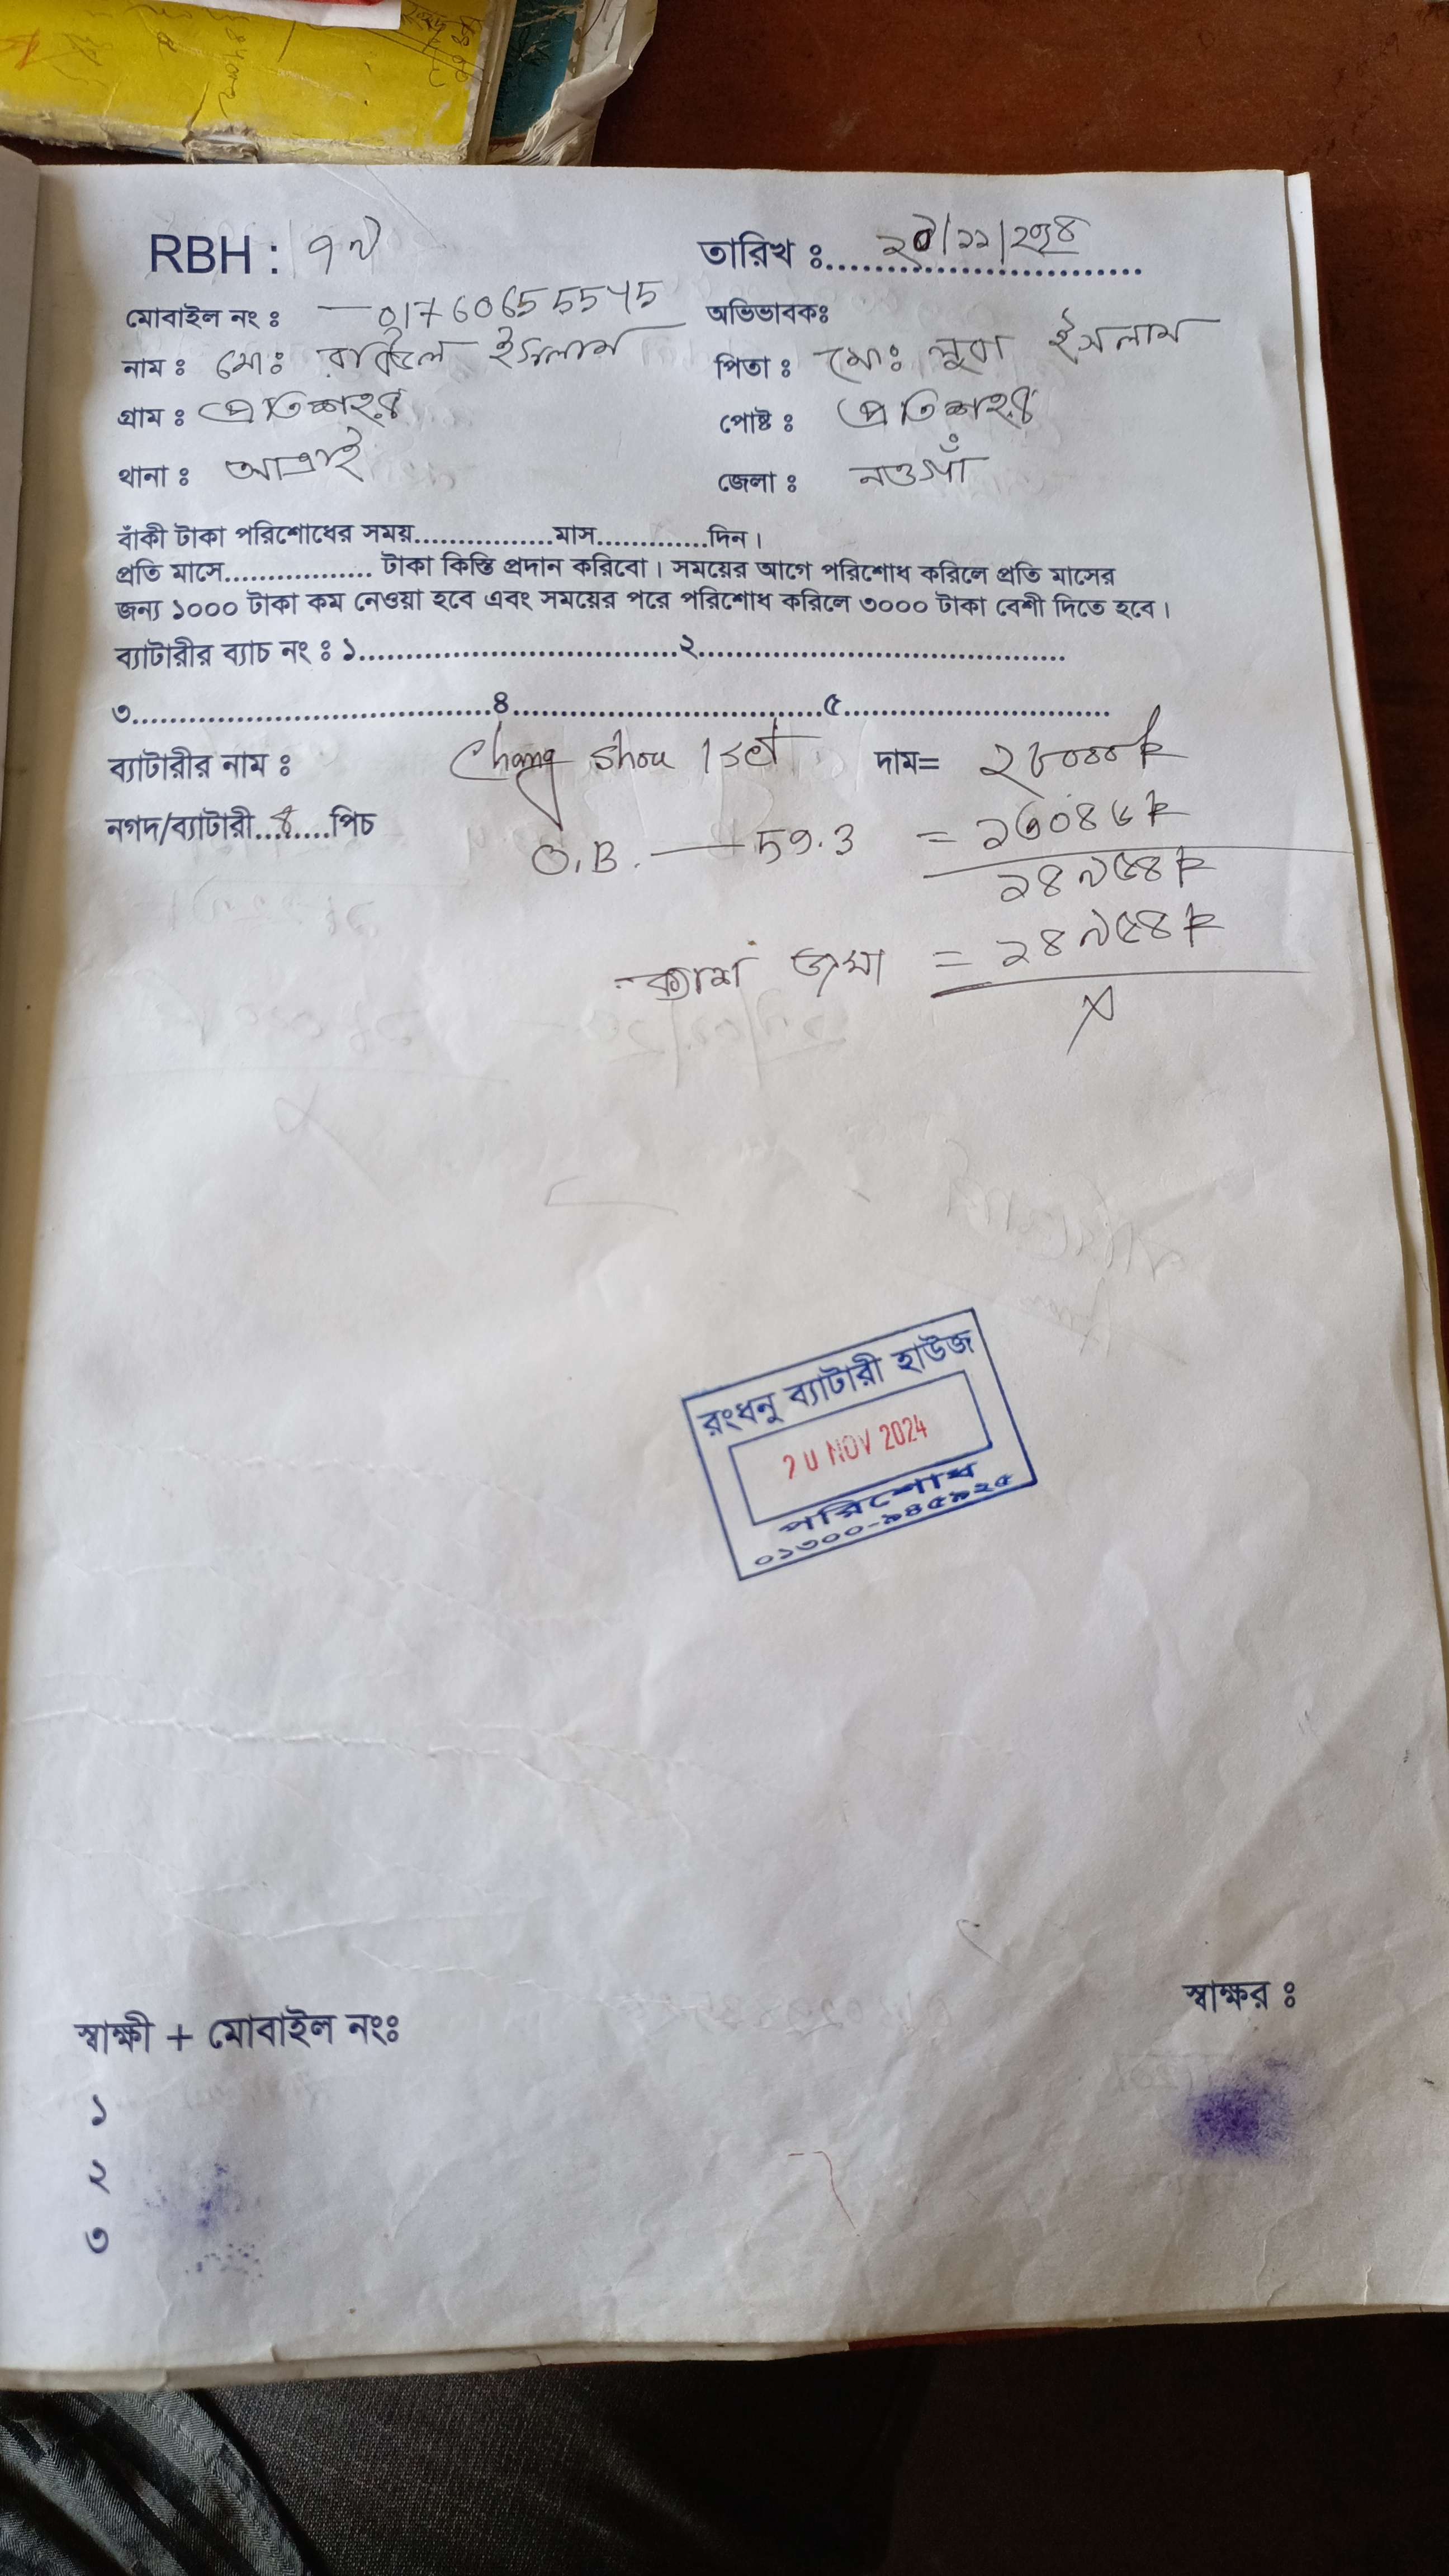 RBH : ৭৯
তারিখ ঃ ২০/১১/২০২৪
মোবাইল নং ঃ 01760655545
অভিভাবকঃ
নাম ঃ মোঃ ইসলাম
পিতা ঃ মোঃ ইসলাম
গ্রাম ঃ
পোষ্ট ঃ
থানা ঃ আত্রাই
জেলা ঃ নওগাঁ
বাঁকী টাকা পরিশোধের সময়................মাস.............দিন।
প্রতি মাসে................. টাকা কিস্তি প্রদান করিবো। সময়ের আগে পরিশোধ করিলে প্রতি মাসের
জন্য ১০০০ টাকা কম নেওয়া হবে এবং সময়ের পরে পরিশোধ করিলে ৩০০০ টাকা বেশী দিতে হবে।
ব্যাটারীর ব্যাচ নং ঃ ১....................................২.........................................
৩........................................৪...................................৫..............................
ব্যাটারীর নাম ঃ Chang Shou 1 set দাম=
নগদ/ব্যাটারী...৪.....পিচ
O.B. — 59.3 =
২৪৯৫৪
ক্যাশ জমা = ২৪৯৫৪
রংধনু ব্যাটারী হাউজ
20 NOV 2024
পরিশোধ
০১৩০০-৯৪৫৯২৫
স্বাক্ষর ঃ
স্বাক্ষী + মোবাইল নংঃ
১
২
৩